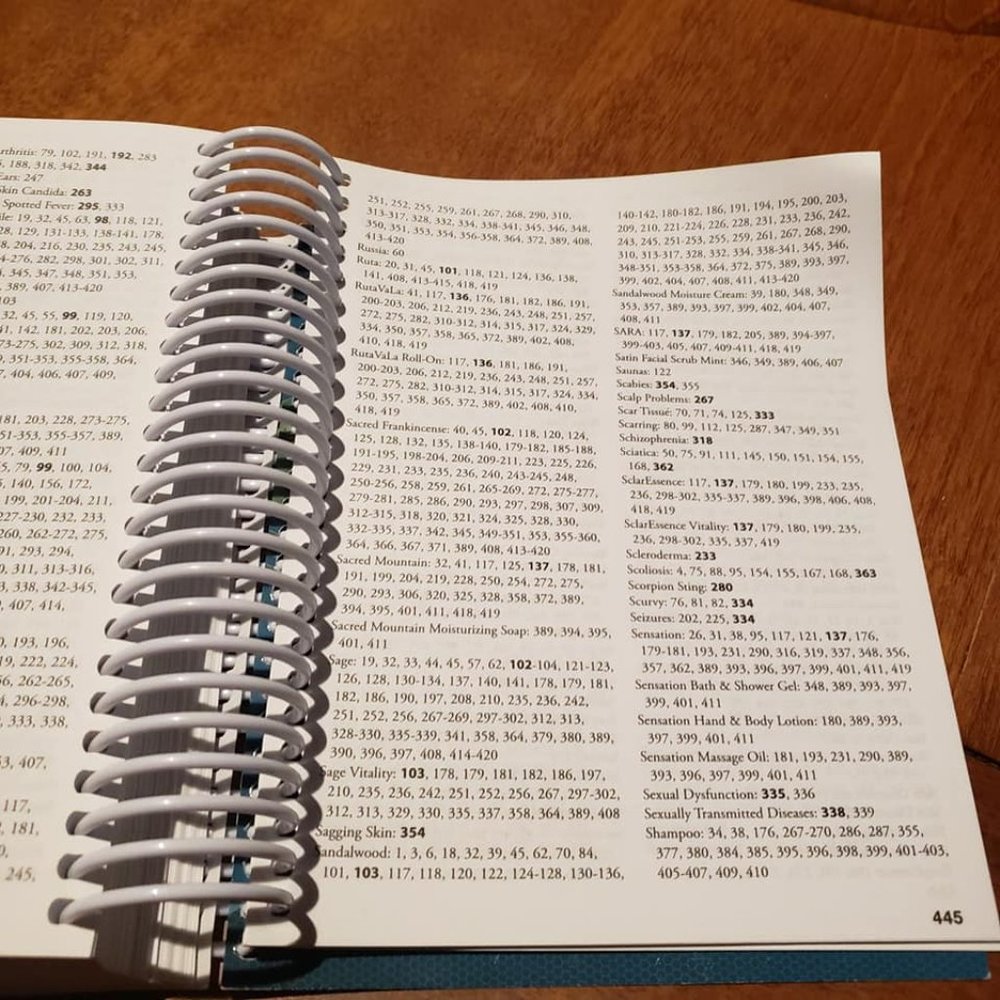 rthritis: 79, 102, 191, 192, 283
, 188, 318, 342, 344
Ears: 247
Skin Candida: 263
Spotted Fever: 295, 333
ile: 19, 32, 45, 63, 98, 118, 121,
28, 129, 131-133, 138-141, 178,
8, 204, 216, 230, 235, 243, 245,
4-276, 282, 298, 301, 302, 311,
, 345, 347, 348, 351, 353,
, 389, 407, 413-420
103
32, 45, 55, 99, 119, 120,
41, 142, 181, 202, 203, 206,
73-275, 302, 309, 312, 318,
, 351-353, 355-358, 364,
7, 404, 406, 407, 409,
181, 203, 228, 273-275,
51-353, 355-357, 389,
07, 409, 411
5, 79, 99, 100, 104,
, 140, 156, 172,
199, 201-204, 211,
227-230, 232, 233,
260, 262-272, 275,
91, 293, 294,
0, 311, 313-316,
3, 338, 342-345,
, 407, 414,
0, 193, 196,
19, 222, 224,
56, 262-265,
4, 296-298,
, 333, 338,
53, 407,
117,
, 181,
0,
245,
251, 252, 255, 259, 261, 267, 268, 290, 310,
313-317, 328, 332, 334, 338-341, 345, 346, 348,
350, 351, 353, 354, 356-358, 364, 372, 389, 408,
413-420
Russia: 60
Ruta: 20, 31, 45, 101, 118, 121, 124, 136, 138,
141, 408, 413-415, 418, 419
RutaVaLa: 41, 117, 136, 176, 181, 182, 186, 191,
200-203, 206, 212, 219, 236, 243, 248, 251, 257,
272, 275, 282, 310-312, 314, 315, 317, 324, 329,
334, 350, 357, 358, 365, 372, 389, 402, 408,
410, 418, 419
RutaVaLa Roll-On: 117, 136, 181, 186, 191,
200-203, 206, 212, 219, 236, 243, 248, 251, 257,
272, 275, 282, 310-312, 314, 315, 317, 324, 334,
350, 357, 358, 365, 372, 389, 402, 408, 410,
418, 419
Sacred Frankincense: 40, 45, 102, 118, 120, 124,
125, 128, 132, 135, 138-140, 179-182, 185-188,
191-195, 198-204, 206, 209-211, 223, 225, 226,
229, 231, 233, 235, 236, 240, 243-245, 248,
250-256, 258, 259, 261, 265-269, 272, 275-277,
279-281, 285, 286, 290, 293, 297, 298, 307, 309,
312-315, 318, 320, 321, 324, 325, 328, 330,
332-335, 337, 342, 345, 349-351, 353, 355-360,
364, 366, 367, 371, 389, 408, 413-420
Sacred Mountain: 32, 41, 117, 125, 137, 178, 181,
191, 199, 204, 219, 228, 250, 254, 272, 275,
290, 293, 306, 320, 325, 328, 358, 372, 389,
394, 395, 401, 411, 418, 419
Sacred Mountain Moisturizing Soap: 389, 394, 395,
401, 411
Sage: 19, 32, 33, 44, 45, 57, 62, 102-104, 121-123,
126, 128, 130-134, 137, 140, 141, 178, 179, 181,
182, 186, 190, 197, 208, 210, 235, 236, 242,
251, 252, 256, 267-269, 297-302, 312, 313,
328-330, 335-339, 341, 358, 364, 379, 380, 389,
390, 396, 397, 408, 414-420
Sage Vitality: 103, 178, 179, 181, 182, 186, 197,
210, 235, 236, 242, 251, 252, 256, 267, 297-302,
312, 313, 329, 330, 335, 337, 358, 364, 389, 408
Sagging Skin: 354
Sandalwood: 1, 3, 6, 18, 32, 39, 45, 62, 70, 84,
101, 103, 117, 118, 120, 122, 124-128, 130-136,
140-142, 180-182, 186, 191, 194, 195, 200, 203,
209, 210, 221-224, 226, 228, 231, 233, 236, 242,
243, 245, 251-253, 255, 259, 261, 267, 268, 290,
310, 313-317, 328, 332, 334, 338-341, 345, 346,
348-351, 353-358, 364, 372, 375, 389, 393, 397,
399, 402, 404, 407, 408, 411, 413-420
Sandalwood Moisture Cream: 39, 180, 348, 349,
353, 357, 389, 393, 397, 399, 402, 404, 407,
408, 411
SARA: 117, 137, 179, 182, 205, 389, 394-397,
399-403, 405, 407, 409-411, 418, 419
Satin Facial Scrub Mint: 346, 349, 389, 406, 407
Saunas: 122
Scabies: 354, 355
Scalp Problems: 267
Scar Tissue: 70, 71, 74, 125, 333
Scarring: 80, 99, 112, 125, 287, 347, 349, 351
Schizophrenia: 318
Sciatica: 50, 75, 91, 111, 145, 150, 151, 154, 155,
168, 362
SclarEssence: 117, 137, 179, 180, 199, 233, 235,
236, 298-302, 335-337, 389, 396, 398, 406, 408,
418, 419
SclarEssence Vitality: 137, 179, 180, 199, 235,
236, 298-302, 335, 337, 419
Scleroderma: 233
Scoliosis: 4, 75, 88, 95, 154, 155, 167, 168, 363
Scorpion Sting: 280
Scurvy: 76, 81, 82, 334
Seizures: 202, 225, 334
Sensation: 26, 31, 38, 95, 117, 121, 137, 176,
179-181, 193, 231, 290, 316, 319, 337, 348, 356,
357, 362, 389, 393, 396, 397, 399, 401, 411, 419
Sensation Bath & Shower Gel: 348, 389, 393, 397,
399, 401, 411
Sensation Hand & Body Lotion: 180, 389, 393,
397, 399, 401, 411
Sensation Massage Oil: 181, 193, 231, 290, 389,
393, 396, 397, 399, 401, 411
Sexual Dysfunction: 335, 336
Sexually Transmitted Diseases: 338, 339
Shampoo: 34, 38, 176, 267-270, 286, 287, 355,
377, 380, 384, 385, 395, 396, 398, 399, 401-403,
405-407, 409, 410
445